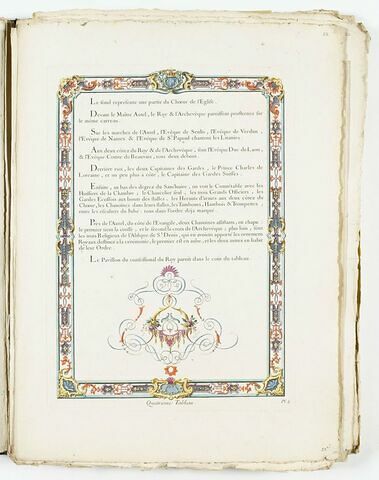 Le fond représente une partie du Chœur de l'Eglise.
Devant le Maitre Autel, le Roy & l'Archevêque paroissent prosternez sur
le même carreau.
Sur les marches de l'Autel, l'Evêque de Senlis, l'Evêque de Verdun,
l'Evêque de Nantes & l'Evêque de St Papoul chantent les Litanies.
Aux deux côtez du Roy & de l'Archevêque, sont l'Evêque Duc de Laon,
& l'Evêque Comte de Beauvais, tous deux debout.
Derriere eux, les deux Capitaines des Gardes, le Prince Charles de
Lorraine, et un peu plus à côté, le Capitaine des Gardes Suisses.
Ensuite, au bas des degrez du Sanctuaire, on voit le Connétable avec les
Huissiers de la Chambre, le Chancelier seul, les trois Grands Officiers, les
Gardes Ecossois aux bouts des stalles, les Herauts d'armes aux deux côtez du
Chœur, les Chanoines dans leurs stalles, les Tambours, Hautbois & Trompettes
entre les escaliers du Jubé, tous dans l'ordre déja marqué.
Près de l'Autel, du côté de l'Evangile, deux Chanoines assistans, en chape
le premier tient la crosse, et le second la croix de l'Archevêque; plus loin, sont
les trois Religieux de l'Abbaye de St Denis, qui en avoient apporté les ornemens
Royaux destinez à la ceremonie; le premier est en aube, et les deux autres en habit
de leur Ordre.
Le Pavillon du confessional du Roy paroît dans le coin du tableau.
Quatrieme Tableau.